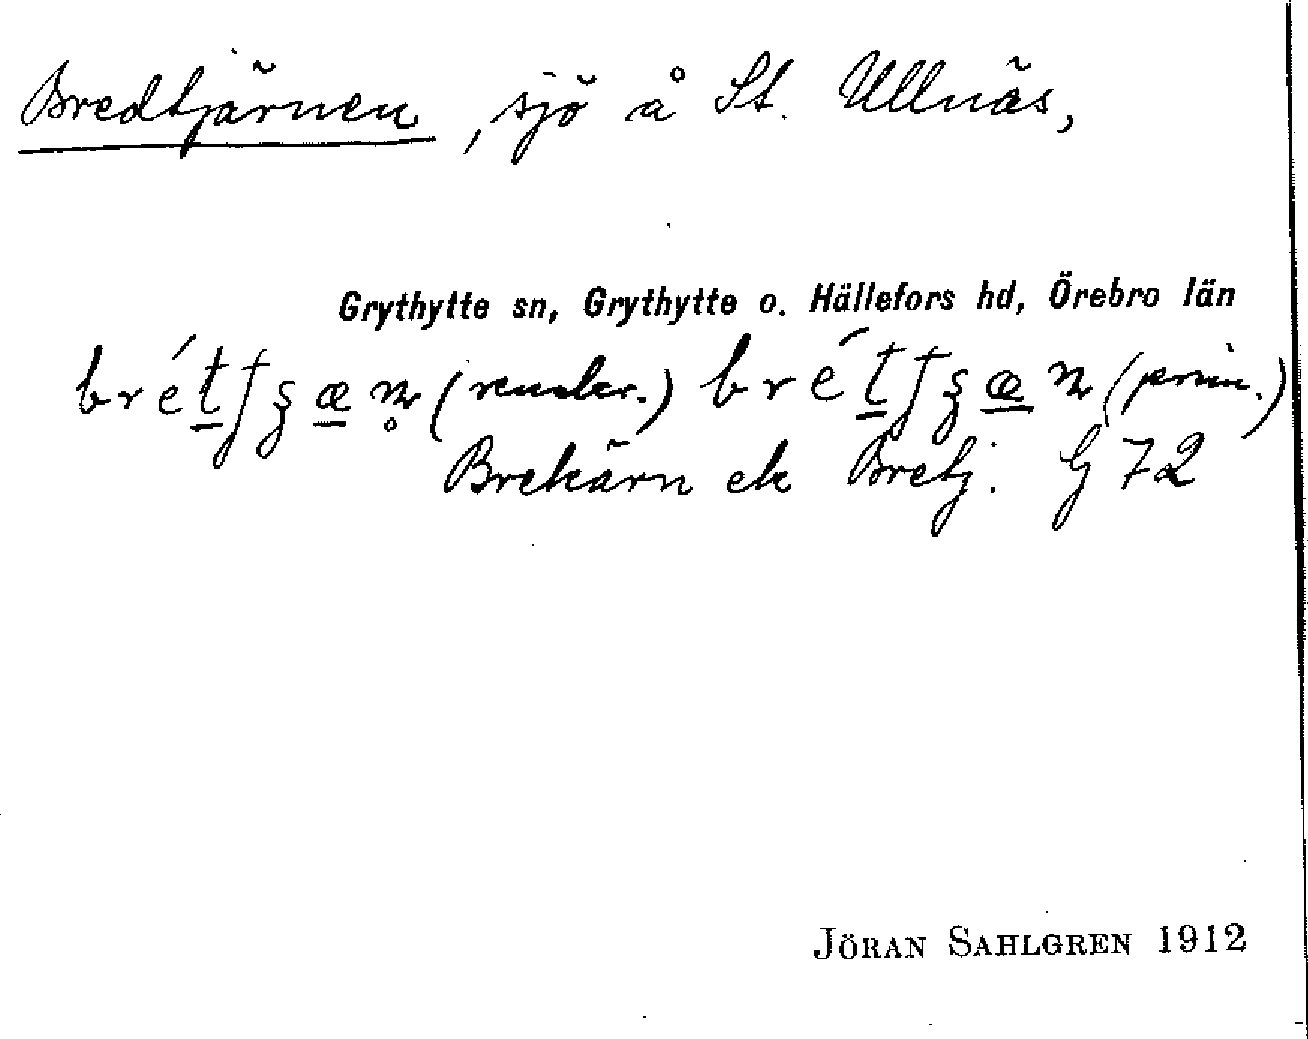 Bredtjärnen, sjö å St. Ullnäs,
Grythytte sn, Grythytte o. Hällefors hd, Örebro län
(prim.)
Brekärn ek Bretj. G 72
JÖRAN SAHLGREN 1912